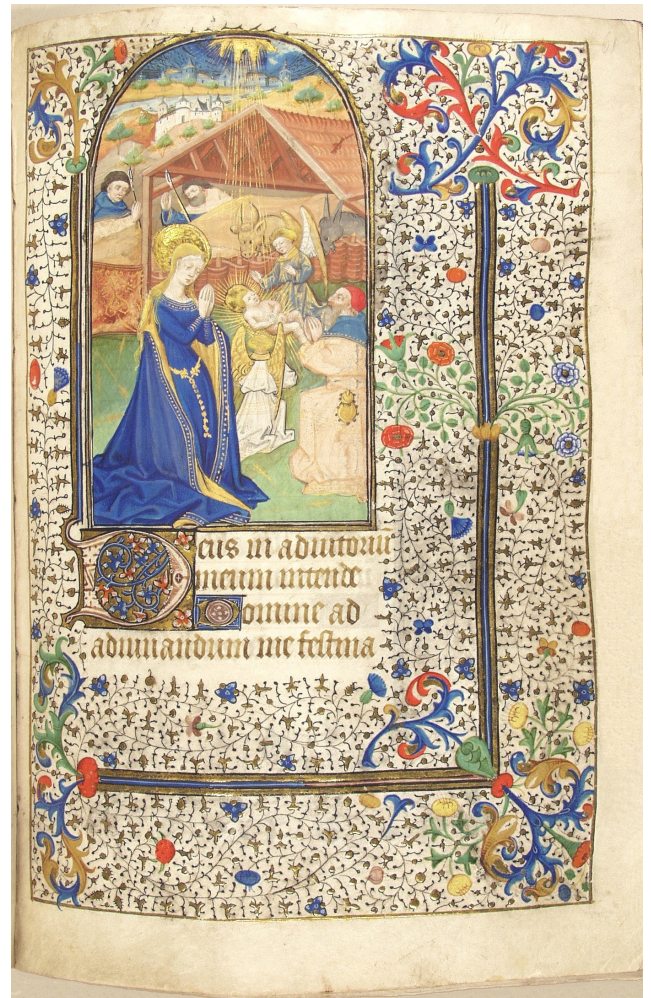 Deus in adiutoriu
meum intende
Domine ad
adiuuandum me festina